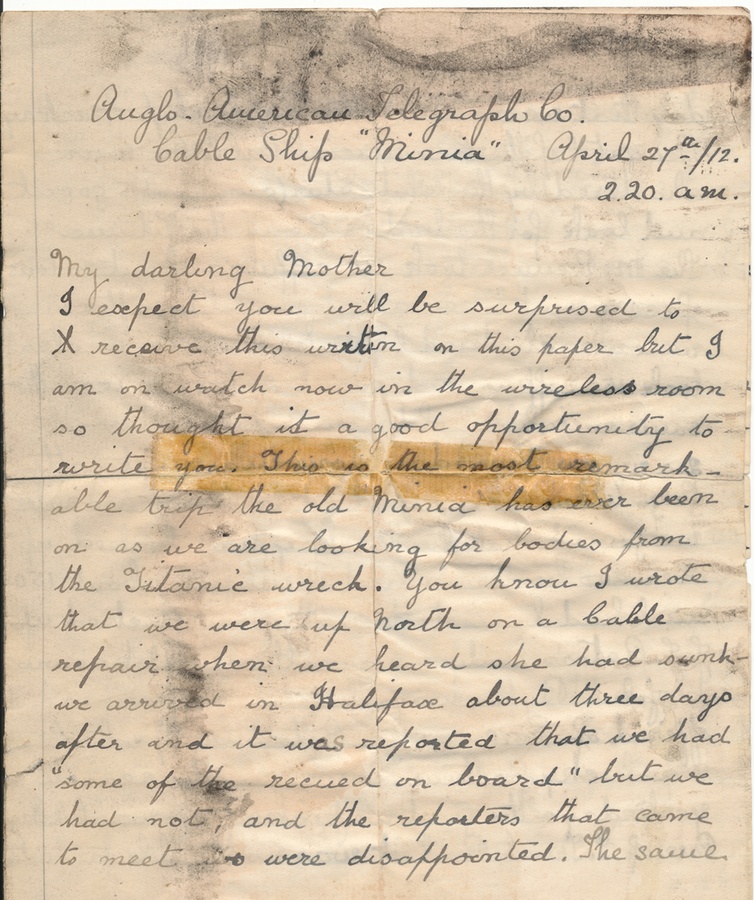 Anglo-American Telegraph Co.
Cable Ship "Minia" April 27th/12.
2.20. a.m.
My darling Mother
I expect you will be surprised to
X receive this written on this paper but I
am on watch now in the wireless room
so thought it a good opportunity to
write you. This is the most remark-
able trip the old Minia has ever been
on as we are looking for bodies from
the Titanic wreck. You know I wrote
that we were up North on a Cable
repair when we heard she had sunk-
we arrived in Halifax about three days
after and it was reported that we had
"some of the recued on board" but we
had not, and the reporters that came
to meet us were disappointed. The same